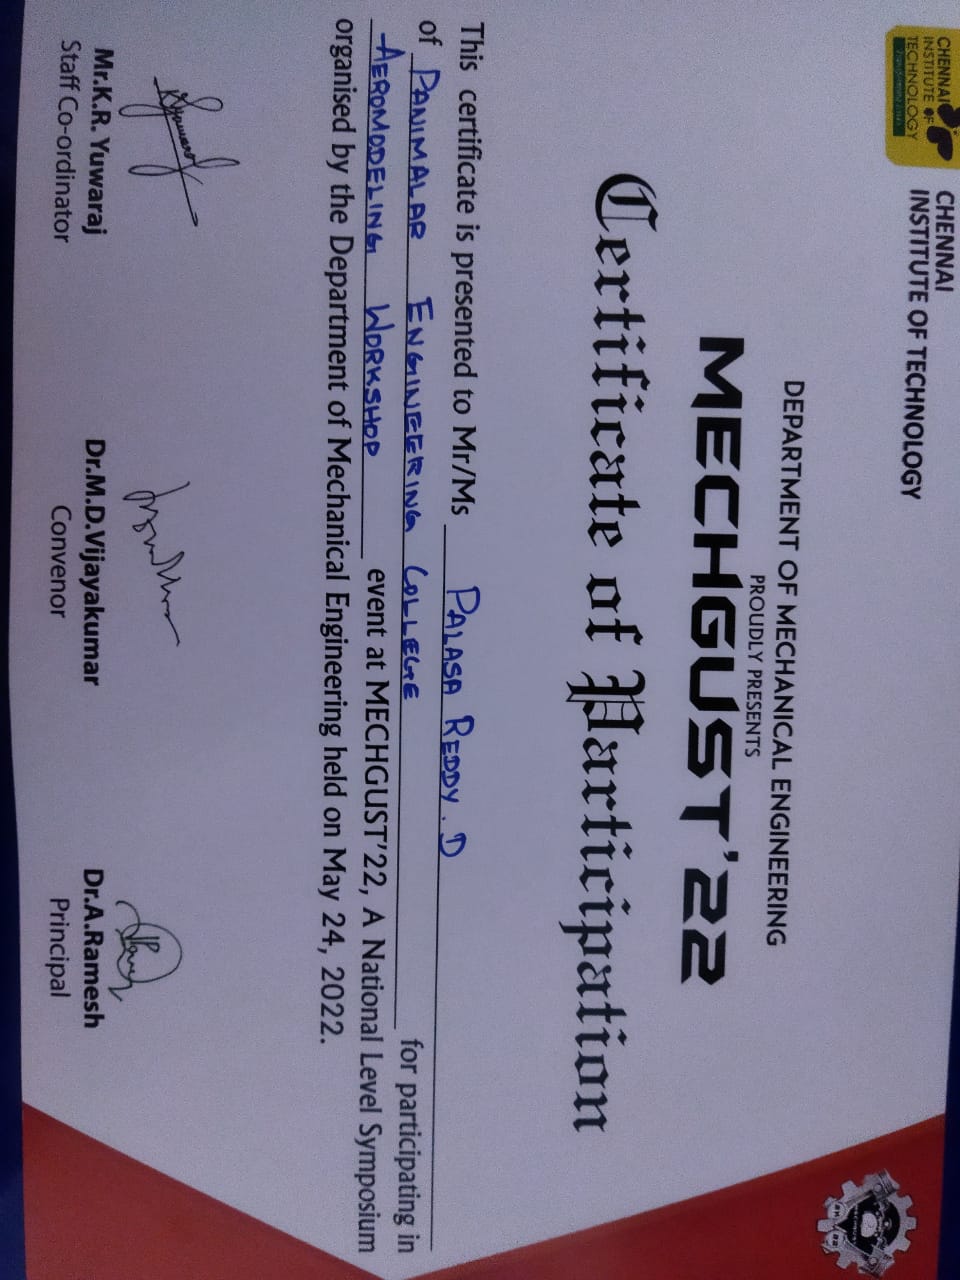 CHENNAI
INSTITUTE OF
TECHNOLOGY
CHENNAI
INSTITUTE OF TECHNOLOGY
MECHGUST
22
DEPARTMENT OF MECHANICAL ENGINEERING
PROUDLY PRESENTS
MECHGUST'22
Certificate of Participation
This certificate is presented to Mr/Ms PALASA REDDY. D
of PANIMALAR ENGINEERING COLLEGE for participating in
AEROMODELING WORKSHOP event at MECHGUST'22, A National Level Symposium
organised by the Department of Mechanical Engineering held on May 24, 2022.
Mr.K.R. Yuwaraj
Staff Co-ordinator
Dr.M.D.Vijayakumar
Convenor
Dr.A.Ramesh
Principal